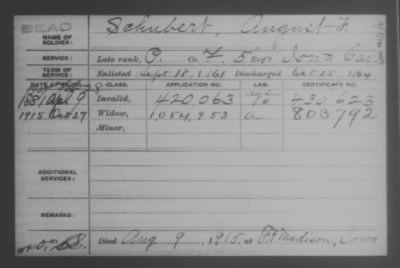 DEAD
NAME OF SOLDIER: Schubert, August F.
SERVICE: Late rank, P. Co. F, 5 Reg't Iowa Cav
TERM OF SERVICE: Enlisted Sept. 18, 1861 Discharged Oct 25, 1864
DATE OF FILING. CLASS. APPLICATION NO. LAW. CERTIFICATE NO.
1881 Apl 9 Invalid, 420,063 432,623
1915 Oct 27 Widow, 1,054,953 a 803792
Minor,
ADDITIONAL SERVICES:
REMARKS:
Died Aug 9, 1915, at Ft Madison, Iowa